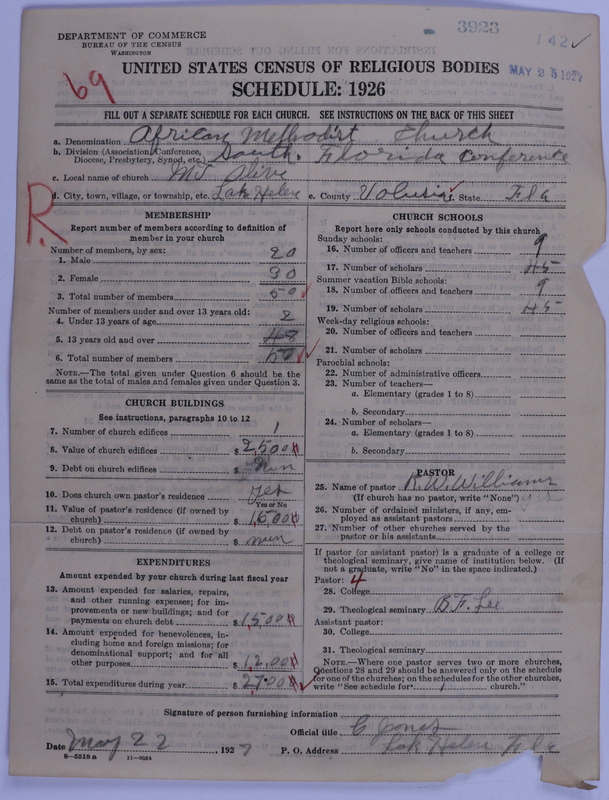 3923
142 ✓
DEPARTMENT OF COMMERCE
BUREAU OF THE CENSUS
WASHINGTON
MAY 25 1927
UNITED STATES CENSUS OF RELIGIOUS BODIES
69
SCHEDULE: 1926
FILL OUT A SEPARATE SCHEDULE FOR EACH CHURCH. SEE INSTRUCTIONS ON THE BACK OF THIS SHEET
a. Denomination African Methodist Church
b. Division (Association, Conference, Diocese, Presbytery, Synod, etc.) South. Florida Conference
c. Local name of church Mt Olive
d. City, town, village, or township, etc. Lake Helen e. County Volusia f. State Fla
R
MEMBERSHIP
Report number of members according to definition of
member in your church
Number of members, by sex:
1. Male 20
2. Female 30
3. Total number of members 50
Number of members under and over 13 years old:
4. Under 13 years of age 2
5. 13 years old and over 48
6. Total number of members 50
NOTE.—The total given under Question 6 should be
same as the total of males and females given under Question 3.
CHURCH BUILDINGS
See instructions, paragraphs 10 to 12
7. Number of church edifices 1
8. Value of church edifices $ 2,500
9. Debt on church edifices $
10. Does church own pastor's residence yes
Yes or No
11. Value of pastor's residence (if owned by
church) $ 1,500
12. Debt on pastor's residence (if owned by
church) $
EXPENDITURES
Amount expended by your church during last fiscal year
13. Amount expended for salaries, repairs,
and other running expenses; for im-
provements or new buildings; and for
payments on church debt $ 1,500
14. Amount expended for benevolences, in-
cluding home and foreign missions; for
denominational support; and for all
other purposes $ 1,200
15. Total expenditures during year $ 2700
CHURCH SCHOOLS
Report here only schools conducted by this church
Sunday schools:
16. Number of officers and teachers 9
17. Number of scholars 45
Summer vacation Bible schools:
18. Number of officers and teachers 9
19. Number of scholars 45
Week-day religious schools:
20. Number of officers and teachers
21. Number of scholars
Parochial schools:
22. Number of administrative officers
23. Number of teachers—
a. Elementary (grades 1 to 8)
b. Secondary
24. Number of scholars—
a. Elementary (grades 1 to 8)
b. Secondary
PASTOR
25. Name of pastor R. W. Williams
(If church has no pastor, write "None")
26. Number of ordained ministers, if any, em-
ployed as assistant pastors
27. Number of other churches served by the
pastor or his assistants
If pastor (or assistant pastor) is a graduate of a college or
theological seminary, give name of institution below. (If
not a graduate, write "No" in the space indicated.)
Pastor: 4
28. College
29. Theological seminary B. F. Lee
Assistant pastor:
30. College
31. Theological seminary
NOTE.—Where one pastor serves two or more churches,
Questions 28 and 29 should be answered only on the schedule
for one of the churches; on the schedules for the other churches,
write "See schedule for church."
Signature of person furnishing information C Jones
Official title
Date May 22, 1927 P. O. Address Lak Helen Fla
8—5518 a 11—9564